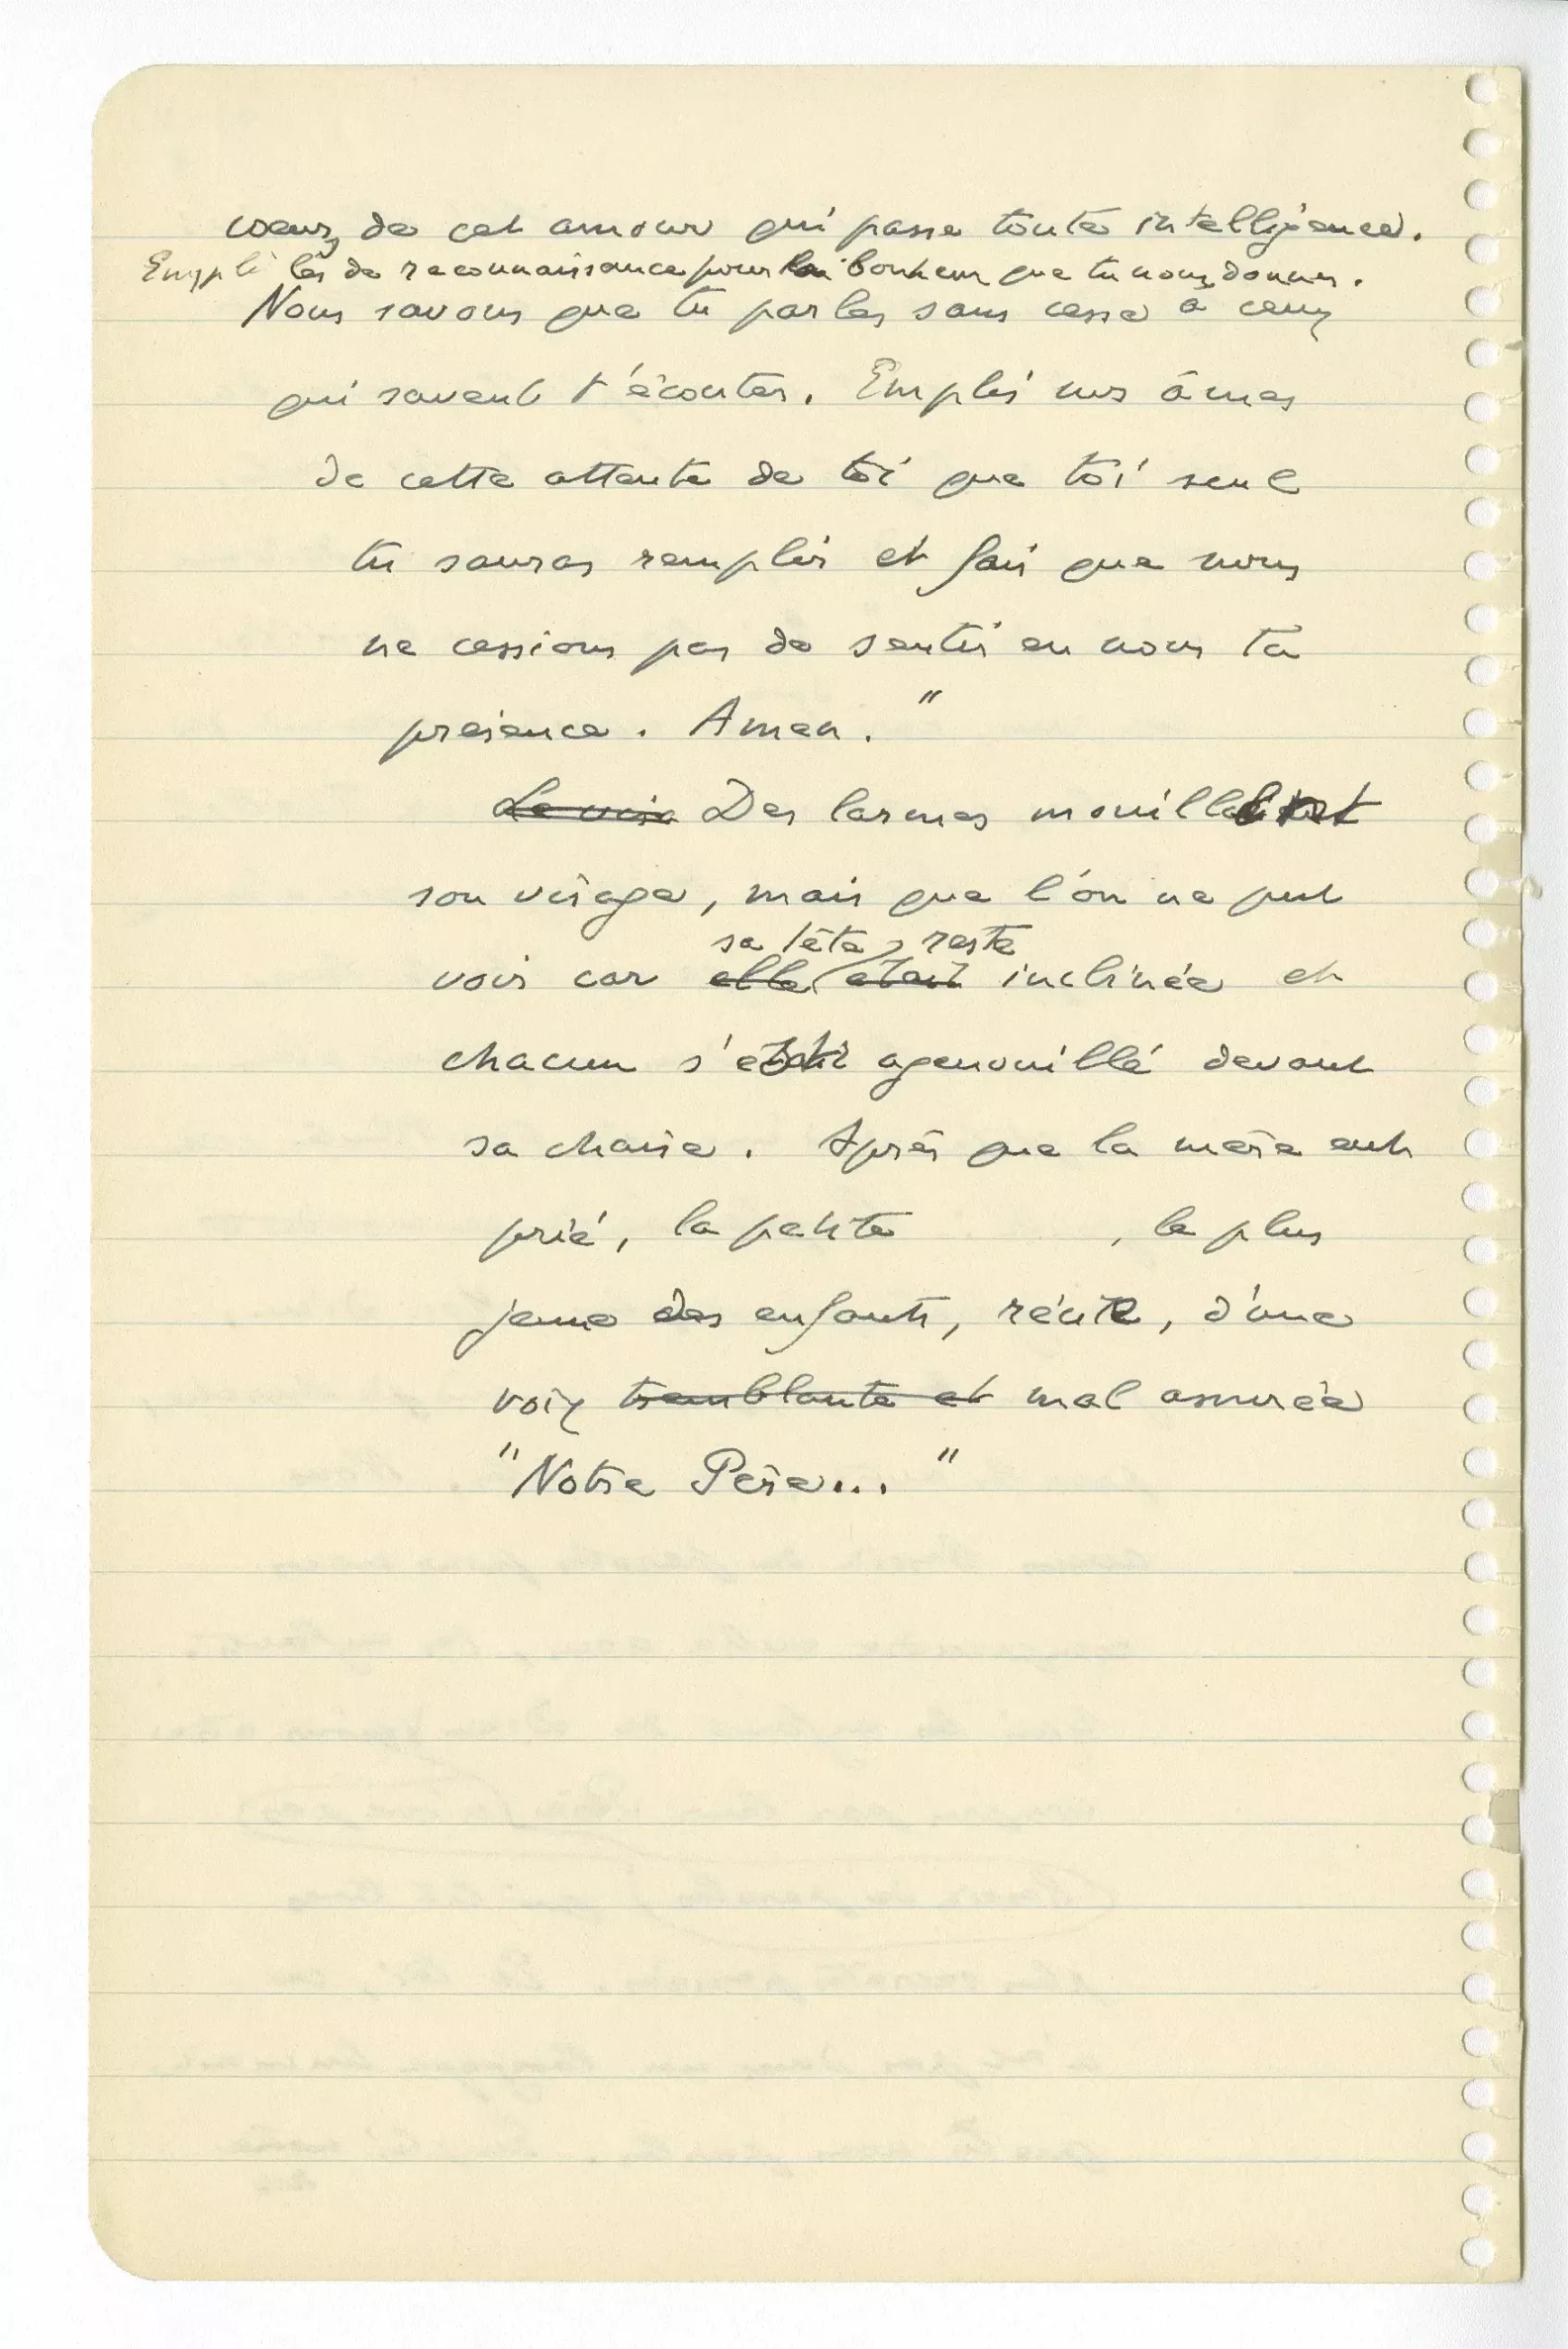 coeurs de cet amour qui passe toute intelligence.
Empli les de reconnaissance pour le bonheur que tu nous donnes.
Nous savons que tu parles sans cesse à ceux
qui savent t'écouter. Emplis nos âmes
de cette attente de toi que toi seul
tu sauras remplir et fais que nous
ne cessions pas de sentir en nous ta
présence. Amen."
Le voix Des larmes mouillent
son visage, mais que l'on ne peut
sa tête, reste
voir car elle était inclinée et
chacun s'est agenouillé devant
sa chaise. Après que la mère eut
prié, la petite , le plus
jeune des enfants, récite, d'une
voix tremblante et mal assurée
"Notre Père..."